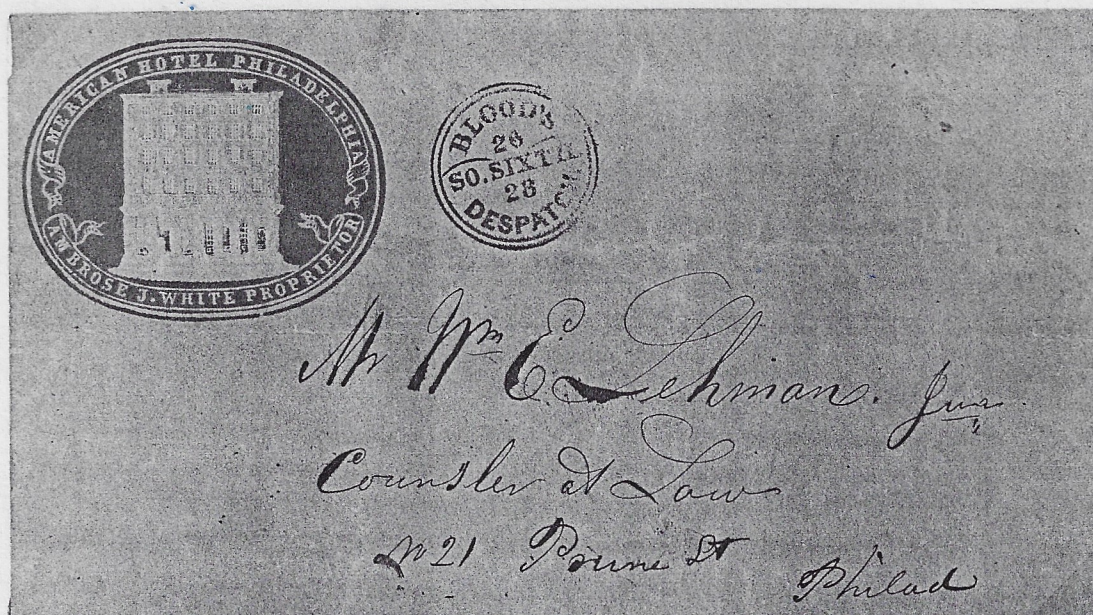 AMERICAN HOTEL PHILADELPHIA
AMBROSE J. WHITE PROPRIETOR
BLOOD'S
26
SO. SIXTH
28
DESPATCH
Mr Wm E. Lehman. Junr
Counsler at Law
No 21 Prune St
Philad